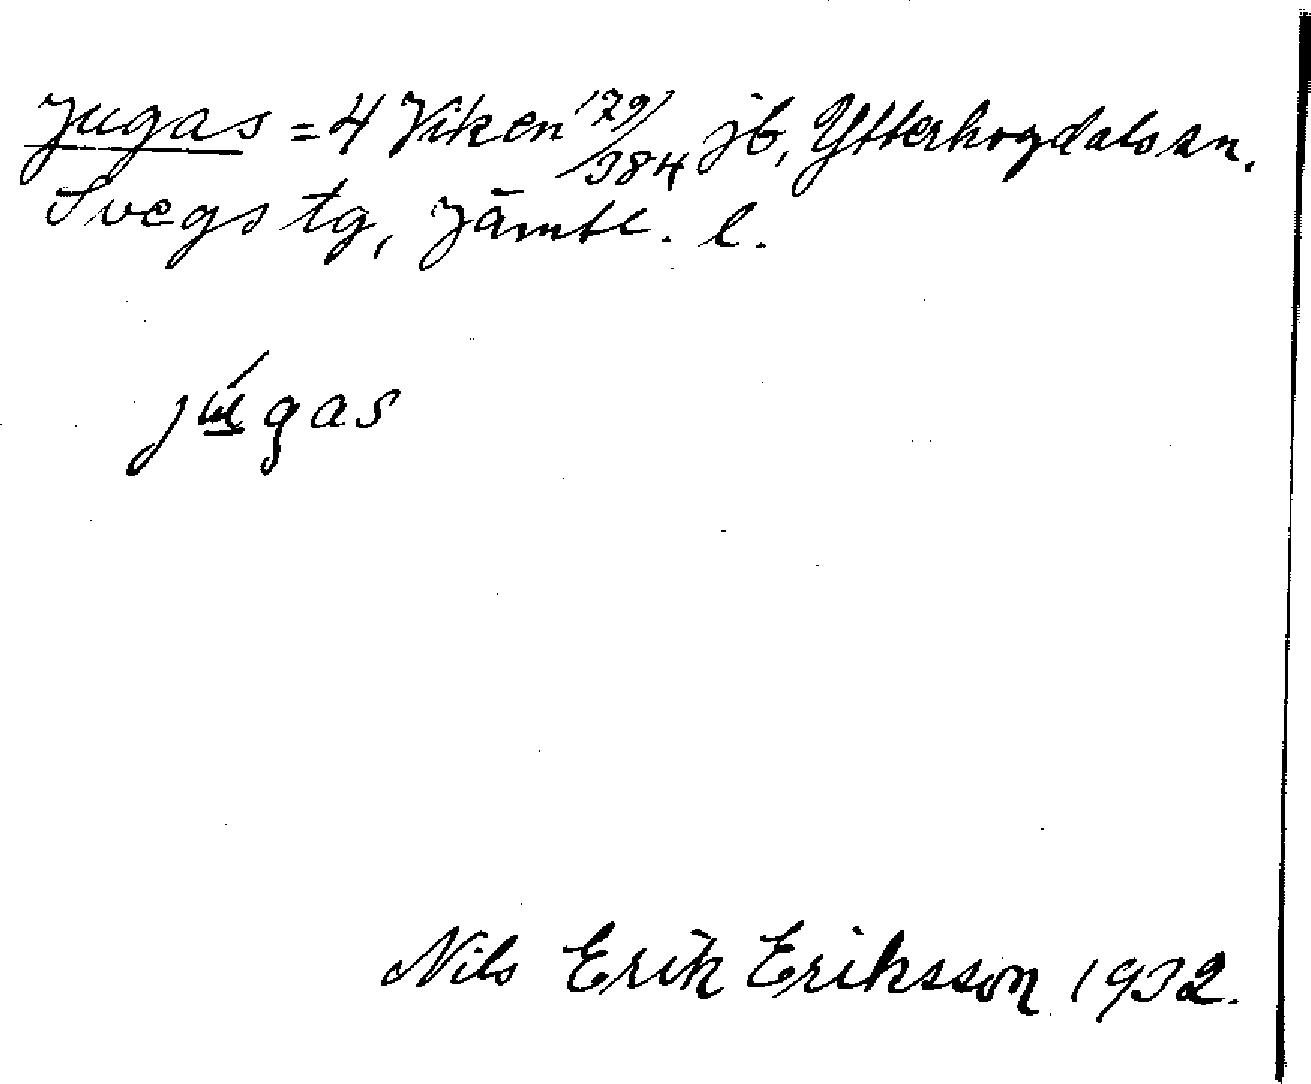 Jugas = 4 Viken 179/384 jb, Ytterhogdals sn.
Svegs tg, Jämtl. l.
júgas
Nils Erik Eriksson 1932.